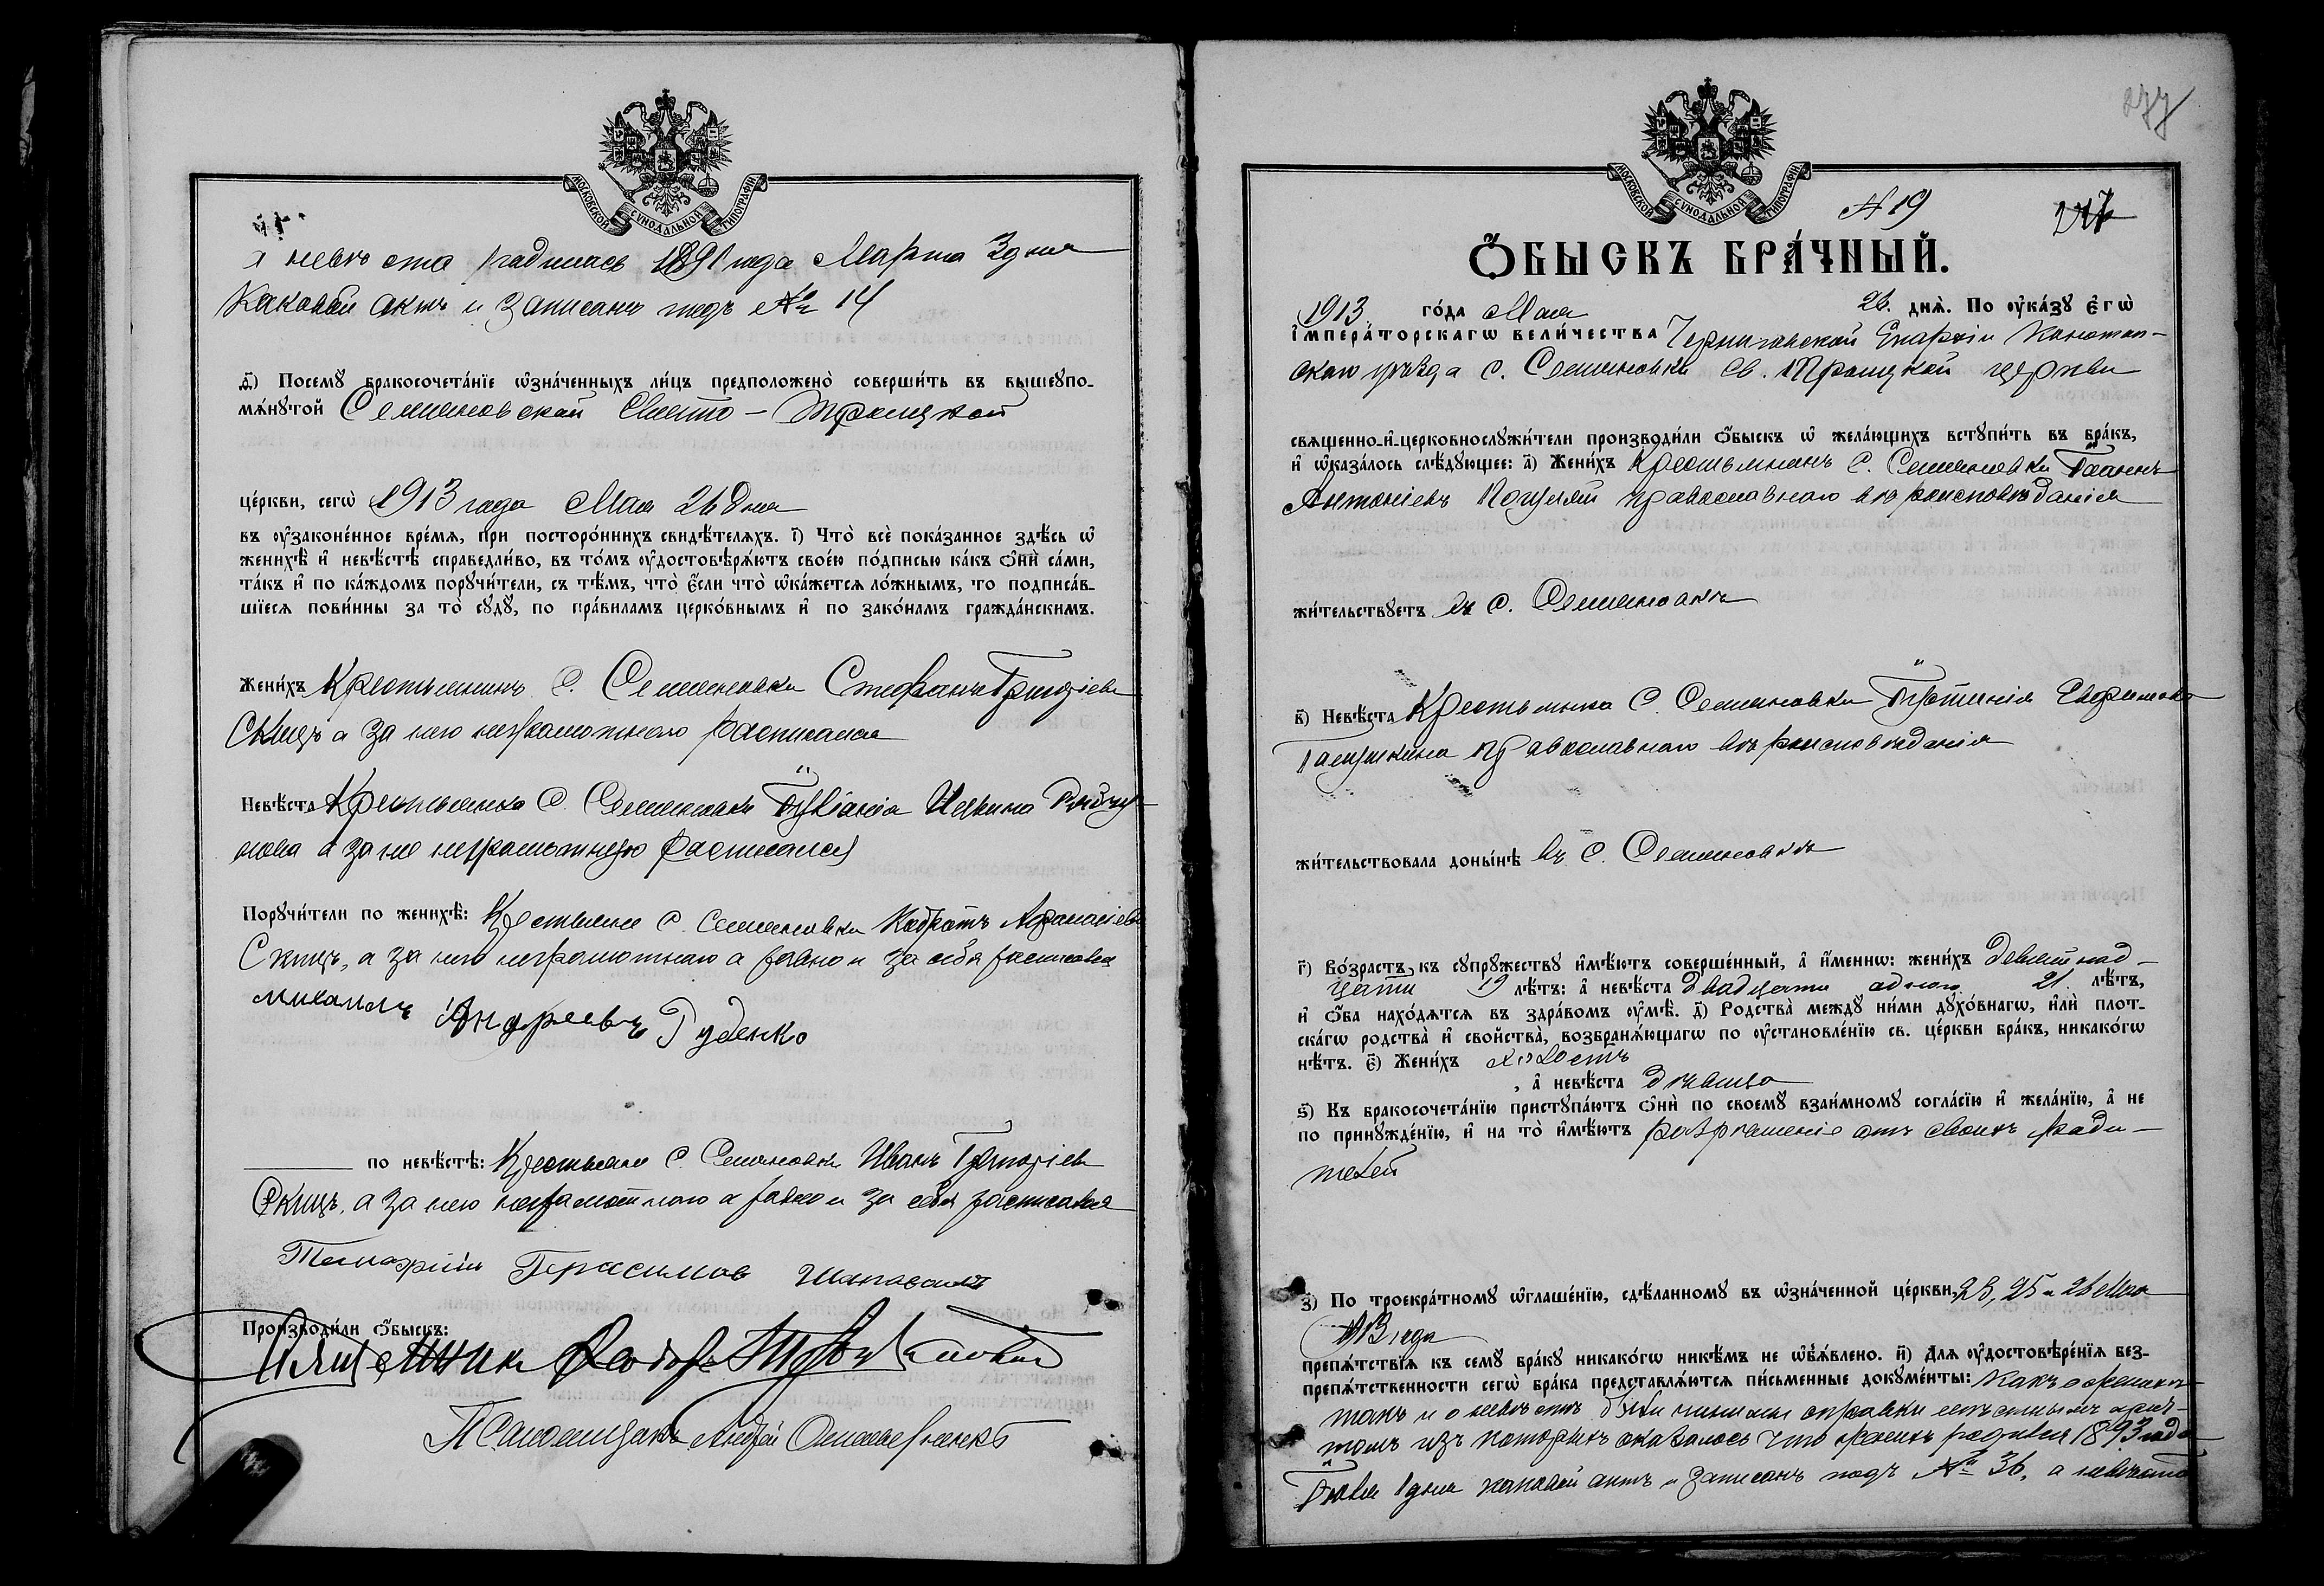 МОСКОВСКОЙ СУНОДАЛЬНОЙ ТИПОГРАФІИ
а невѣста родилась 1891 года Марта 3 дня
Каковой актъ и записанъ подъ № 14
д҃) Посемꙋ бракосочета́нїе ѡ҆зна́ченныхъ ли́цъ предположено̀ соверши́ть въ вышеꙋпо-
мѧ́нꙋтой Семеновской Свято-Троицкой
це́ркви, сегѡ̀ 1913 года Мая 26 дня
въ ᲂу҆законе́нное вре́мѧ, при посторо́ннихъ свидѣ́телѧхъ. і҃) Что̀ всѐ пока́занное здѣ́сь ѡ҆
женихѣ̀ и҆ невѣ́стѣ справедли́во, въ то́мъ ᲂу҆достовѣрѧ́ютъ свое́ю по́дписью ка́къ ѻ҆нѝ са́ми,
та́къ и҆ по ка́ждомъ порꙋчи́тели, съ тѣ́мъ, что̀ є҆́сли что̀ ѡ҆ка́жетсѧ ло́жнымъ, то подписа́в-
шїесѧ пови́нны за то̀ сꙋдꙋ̀, по пра́виламъ церко́внымъ и҆ по зако́намъ гражда́нскимъ.
Жени́хъ Крестьянинъ С. Семеновки Стефанъ Григоріевъ
Скицъ а за него неграмотнаго расписался
Невѣ́ста Крестьянка С. Семеновки
а за нее неграмотную расписался
Порꙋчи́тели по женихѣ̀: Крестьяне С. Семеновки Кодратъ Афанасіевъ
Скицъ, а за него неграмотнаго а равно и за себя расписался
Михаилъ Андреевъ Руденко
по невѣ́стѣ: Крестьяне С. Семеновки Иванъ Григоріевъ
Скицъ, а за него неграмотнаго а равно и за себя расписался
Герасимов Шаповалъ
Производи́ли ѻ҆́быскъ:
Священникъ Феодоръ
Псаломщикъ Андрей
МОСКОВСКОЙ СУНОДАЛЬНОЙ ТИПОГРАФІИ
277
№ 19
Ѻ҆́БЫСКЪ БРА́ЧНЫЙ.
1913 го́да Мая 26. днѧ̀. По ᲂу҆ка́зꙋ є҆гѡ̀
і҆мпера́торскагѡ вели́чества Черниговской Епархіи Конотоп-
скаго уѣзда с. Семеновки Св. Троицкой церкви
свѧщенно-и҆-церковнослꙋжи́тели производи́ли ѻ҆́быскъ ѡ҆ жела́ющихъ встꙋпи́ть въ бра́къ,
и҆ ѡ҆каза́лось слѣ́дꙋющее: а҃) Жени́хъ Крестьянинъ С. Семеновки Іоаннъ
Антоніевъ Коцляй православнаго вѣроисповѣданія
жи́тельствꙋетъ въ С. Семеновкѣ
в҃) Невѣ́ста Крестьянка С. Семеновки Іустинія Евфимова
православнаго вѣроисповѣданія
жи́тельствовала доны́нѣ въ С. Семеновкѣ
г҃) Во́зрастъ къ сꙋпрꙋ́жествꙋ и҆мѣ́ютъ соверше́нный, а҆ и҆́меннѡ: жени́хъ девятнад-
цати 19 лѣ́тъ: а҆ невѣ́ста двадцати одного 21. лѣ́тъ,
и҆ ѻ҆́ба нахо́дѧтсѧ въ здра́вомъ ᲂу҆мѣ̀. д҃) Родства̀ междꙋ̀ ни́ми дꙋхо́внагѡ, и҆лѝ плот-
ска́гѡ родства̀ и҆ сво́йства̀, возбранѧ́ющагѡ по ᲂу҆становле́нїю св. це́ркви бра́къ, никако́гѡ
нѣ́тъ. є҃) Жени́хъ холостъ
, а҆ невѣ́ста дѣвица
ѕ҃) Къ бракосочета́нїю пристꙋпа́ютъ ѻ҆нѝ по своемꙋ̀ взаи́мномꙋ согла́сїю и҆ жела́нїю, а҆ не
по принꙋжде́нїю, и҆ на то̀ и҆мѣ́ютъ разрѣшеніе отъ своихъ роди-
телей
з҃) По троекра́тномꙋ ѡ҆глаше́нїю, сдѣ́ланномꙋ въ ѡ҆зна́ченной це́ркви, 23, 25 и 26 Мая
1913 года
препѧ́тствїѧ къ семꙋ̀ бра́кꙋ никако́гѡ никѣ́мъ не ѡ҆б̾ѧ́влено. и҃) Длѧ ᲂу҆достовѣре́нїѧ без-
препѧ́тственности сегѡ̀ бра́ка представлѧ́ютсѧ пи́сьменные докꙋме́нты: Какъ о женихѣ
такъ и о невѣстѣ были чинимы справки мѣстнымъ прич-
томъ изъ которыхъ оказалось что женихъ родился 1893 года
Іюля 1 дня каковой актъ и записанъ подъ № 36, а невѣста